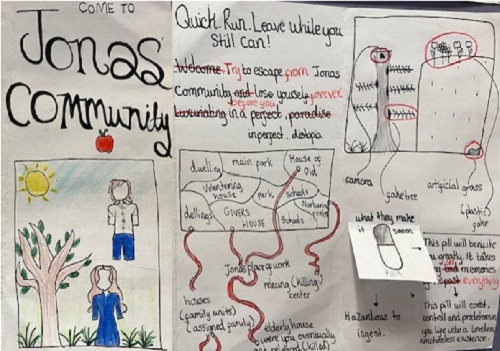 COME TO
Jonas'
COMMUNITY
Quick. Run. Leave while you
Still Can!
Welcome. Try to escape from Jonas
Community and lose yousely forever
before you
luxuriating in a perfect, paradise
inperfect, distopia
dwelling
main park
House of
Old
Voluntering
house
park
Schools
Nurturing
center
dwellings
GIVERS
HOUSE
Schools
Jonas place of work
releacing (killing)
center
houses
(family units)
(assigned family)
elderly house
were you eventually
get released (killed)
camera
fake tree
artigicial grass
(plastic)
fake
what they make
it seem
Hazardous to
ingest.
This pill will benifit
you greatly. It takes
memories
past everything
This pill will
control and predetermine
you life into a
emotionless existence.